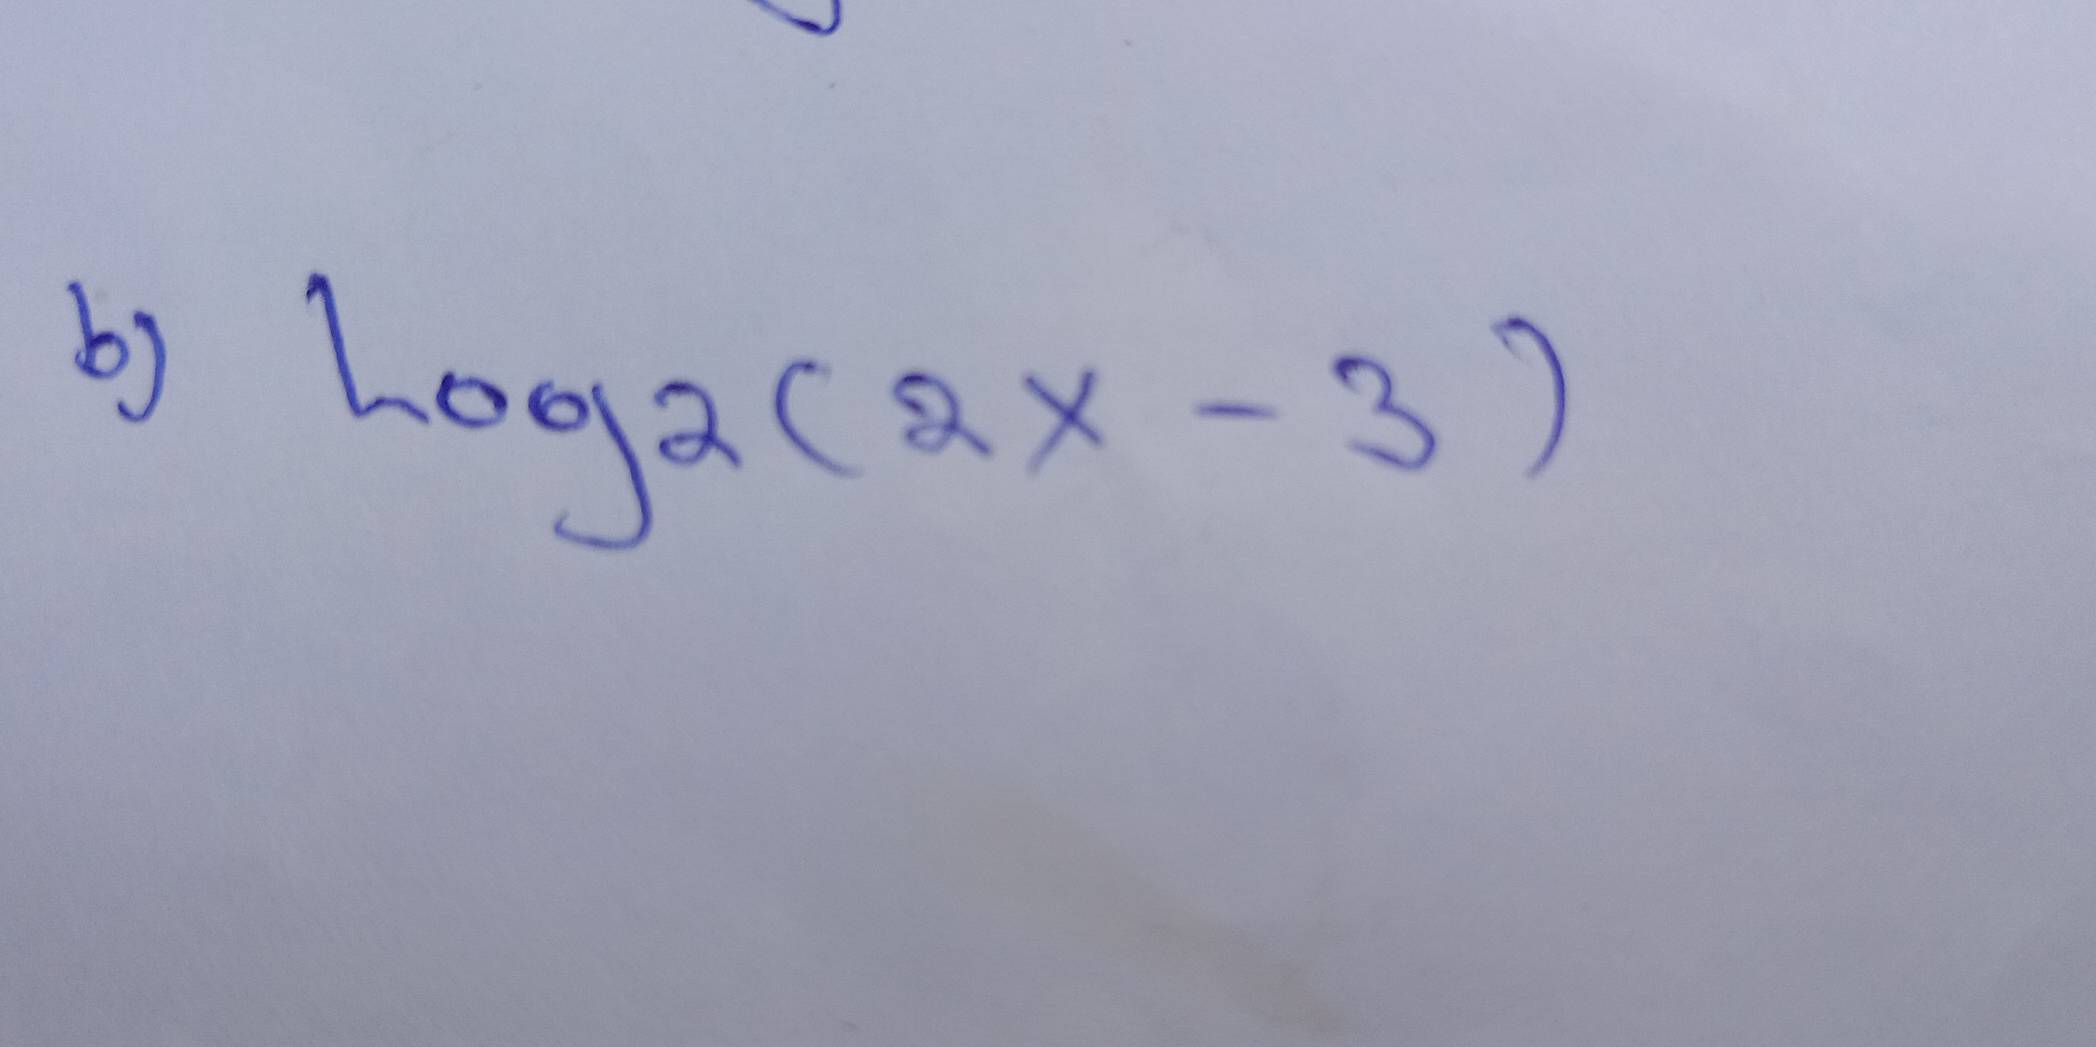 b) Log2(2x-3)